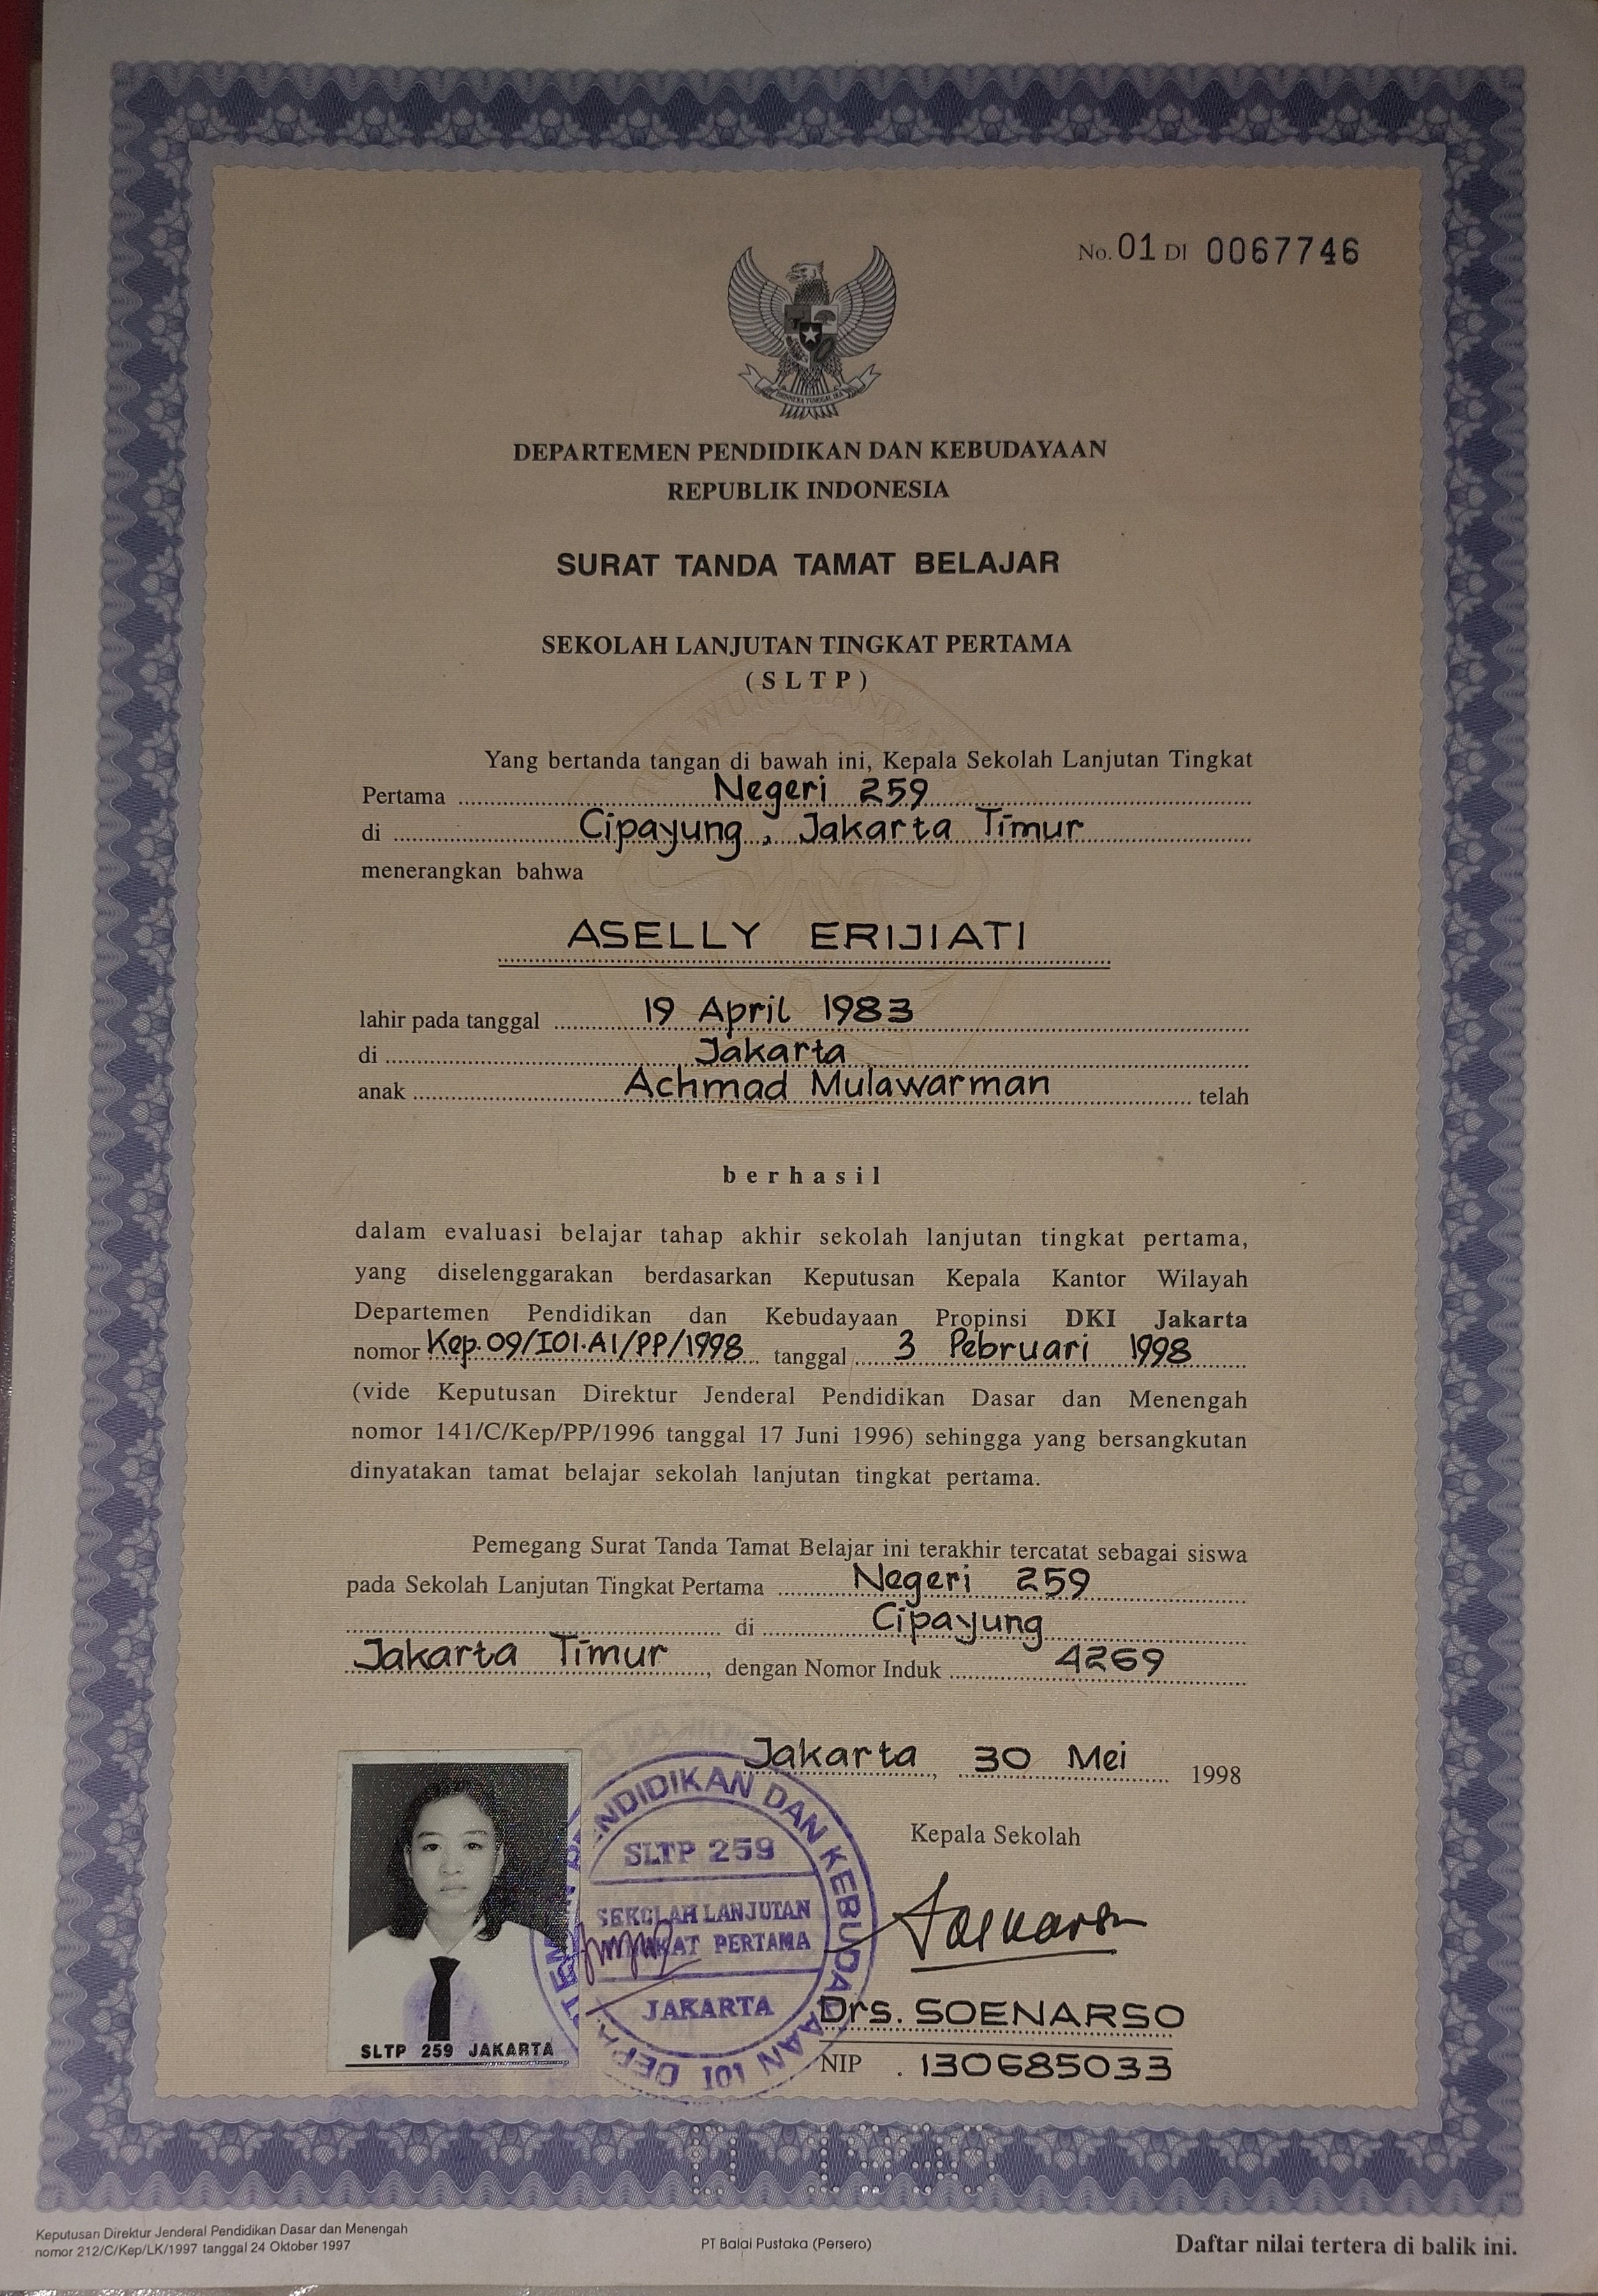 No. 01 DI 0067746
BHINNEKA TUNGGAL IKA
DEPARTEMEN PENDIDIKAN DAN KEBUDAYAAN
REPUBLIK INDONESIA
SURAT TANDA TAMAT BELAJAR
SEKOLAH LANJUTAN TINGKAT PERTAMA
(SLTP)
Yang bertanda tangan di bawah ini, Kepala Sekolah Lanjutan Tingkat
Pertama Negeri 259
di Cipayung, Jakarta Timur
menerangkan bahwa
ASELLY ERIJIATI
lahir pada tanggal 19 April 1983
di Jakarta
anak Achmad Mulawarman telah
berhasil
dalam evaluasi belajar tahap akhir sekolah lanjutan tingkat pertama,
yang diselenggarakan berdasarkan Keputusan Kepala Kantor Wilayah
Departemen Pendidikan dan Kebudayaan Propinsi DKI Jakarta
nomor Kep.09/I01.A1/PP/1998 tanggal 3 Pebruari 1998
(vide Keputusan Direktur Jenderal Pendidikan Dasar dan Menengah
nomor 141/C/Kep/PP/1996 tanggal 17 Juni 1996) sehingga yang bersangkutan
dinyatakan tamat belajar sekolah lanjutan tingkat pertama.
Pemegang Surat Tanda Tamat Belajar ini terakhir tercatat sebagai siswa
pada Sekolah Lanjutan Tingkat Pertama Negeri 259
di Cipayung
Jakarta Timur, dengan Nomor Induk 4269
Jakarta, 30 Mei 1998
Kepala Sekolah
Drs. SOENARSO
NIP. 130685033
SLTP 259 JAKARTA
PENDIDIKAN DAN KEBUDAYAAN 101
SLTP 259
SEKOLAH LANJUTAN
PERTAMA
JAKARTA
Keputusan Direktur Jenderal Pendidikan Dasar dan Menengah
nomor 212/C/Kep/LK/1997 tanggal 24 Oktober 1997
PT Balai Pustaka (Persero)
Daftar nilai tertera di balik ini.